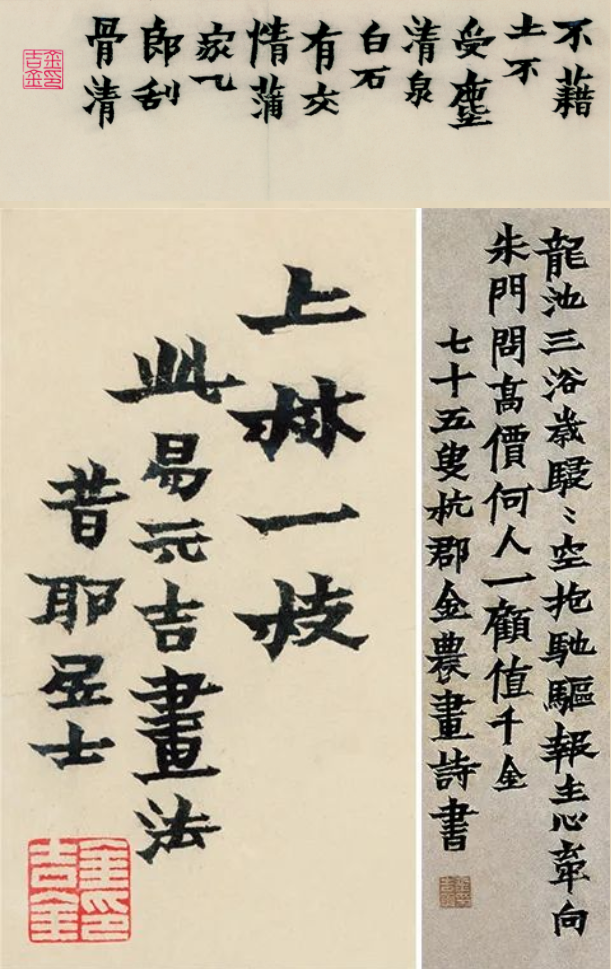 不藉
土不
受塵
清泉
白石
有交
情蒲
家
郎刮
骨清
金印
吉金
龍池三浴歲駸〻空抱馳驅報主心牽向
朱門問高價何人一顧值千金
七十五叟杭郡金農畫詩書
上林一枝
此易元吉畫法
昔耶居士
金印
吉金